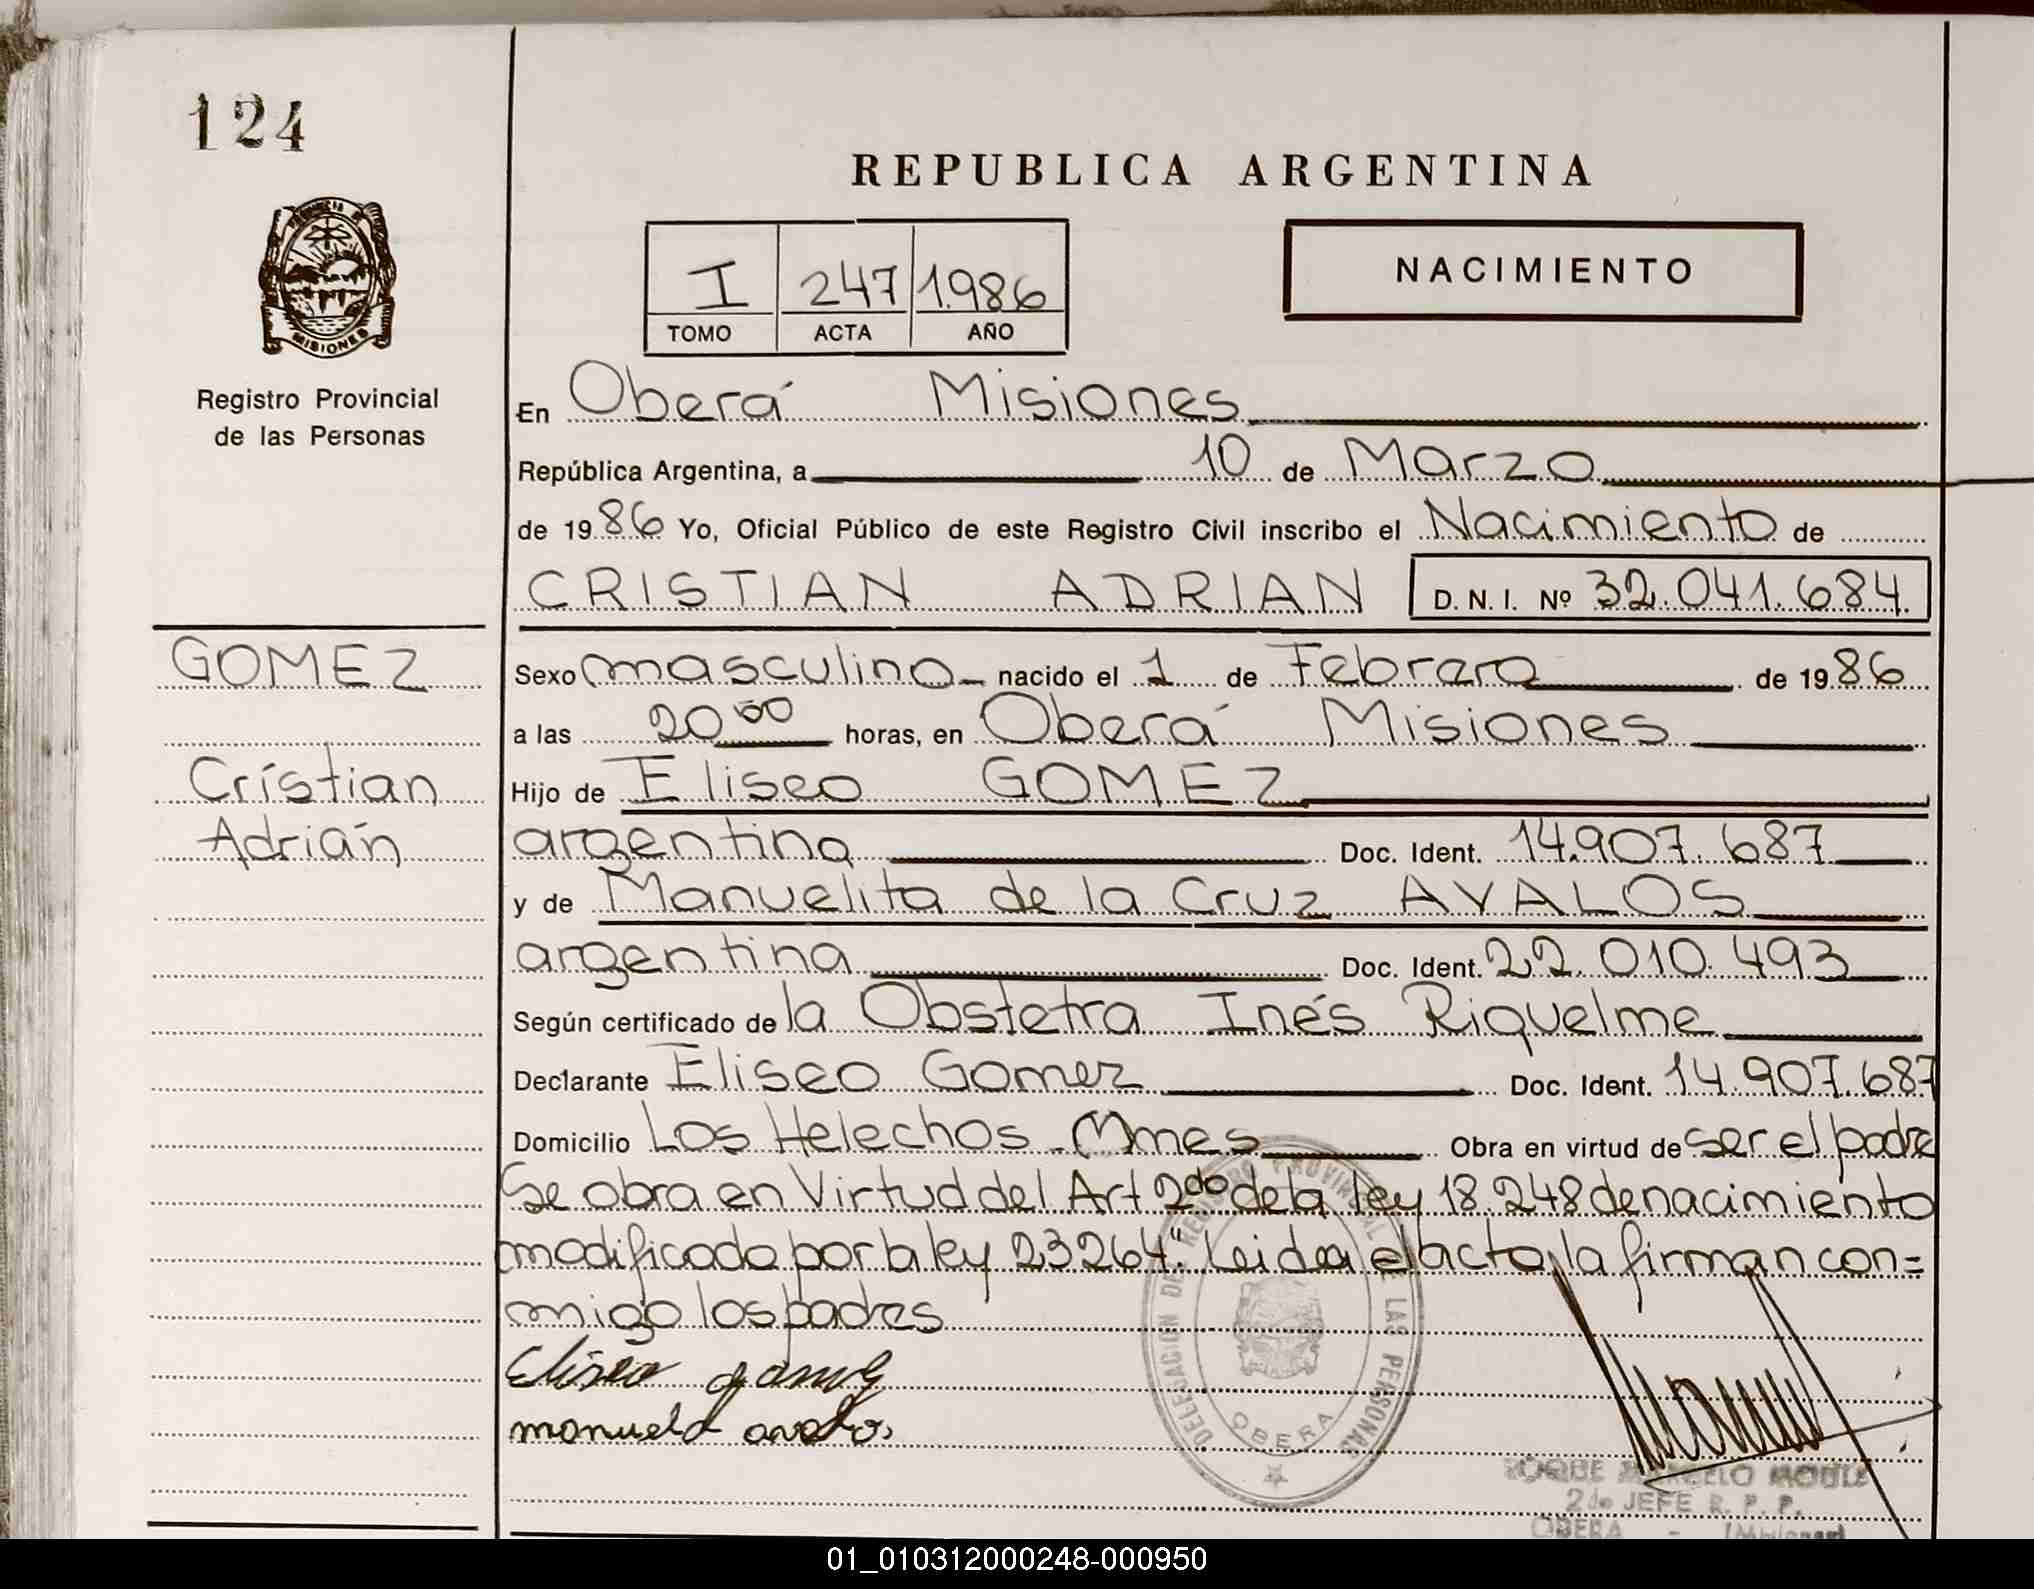 124
REPUBLICA ARGENTINA
I 247 1.986
TOMO ACTA AÑO
NACIMIENTO
PROVINCIA DE
MISIONES
Registro Provincial
de las Personas
En Oberá Misiones
República Argentina, a 10 de Marzo
de 19 86 Yo, Oficial Público de este Registro Civil inscribo el Nacimiento de
CRISTIAN ADRIAN D. N. I. Nº 32.041.684
GOMEZ
Cristian
Adrián
Sexo masculino nacido el 1 de Febrero de 19 86
a las 20 00 horas, en Oberá Misiones
Hijo de Eliseo GOMEZ
argentina Doc. Ident. 14.907.687
y de Manuelita de la Cruz AVALOS
argentina Doc. Ident. 22.010.493
Según certificado de la Obstetra Inés Riquelme
Declarante Eliseo Gomez Doc. Ident. 14.907.687
Domicilio Los Helechos - Mnes Obra en virtud de ser el padre
Se obra en Virtud del Art 2do de la ley 18.248 de nacimiento
modificado por la ley 23264". Leida el acto, la firman con=
migo los padres
Eliseo gomez
manuela avalos.
DELEGACION DEL REGISTRO PROVINCIAL DE LAS PERSONAS
OBERA
ROQUE MARCELO
2do JEFE R. P. P.
OBERA - (Misiones)
01_010312000248-000950